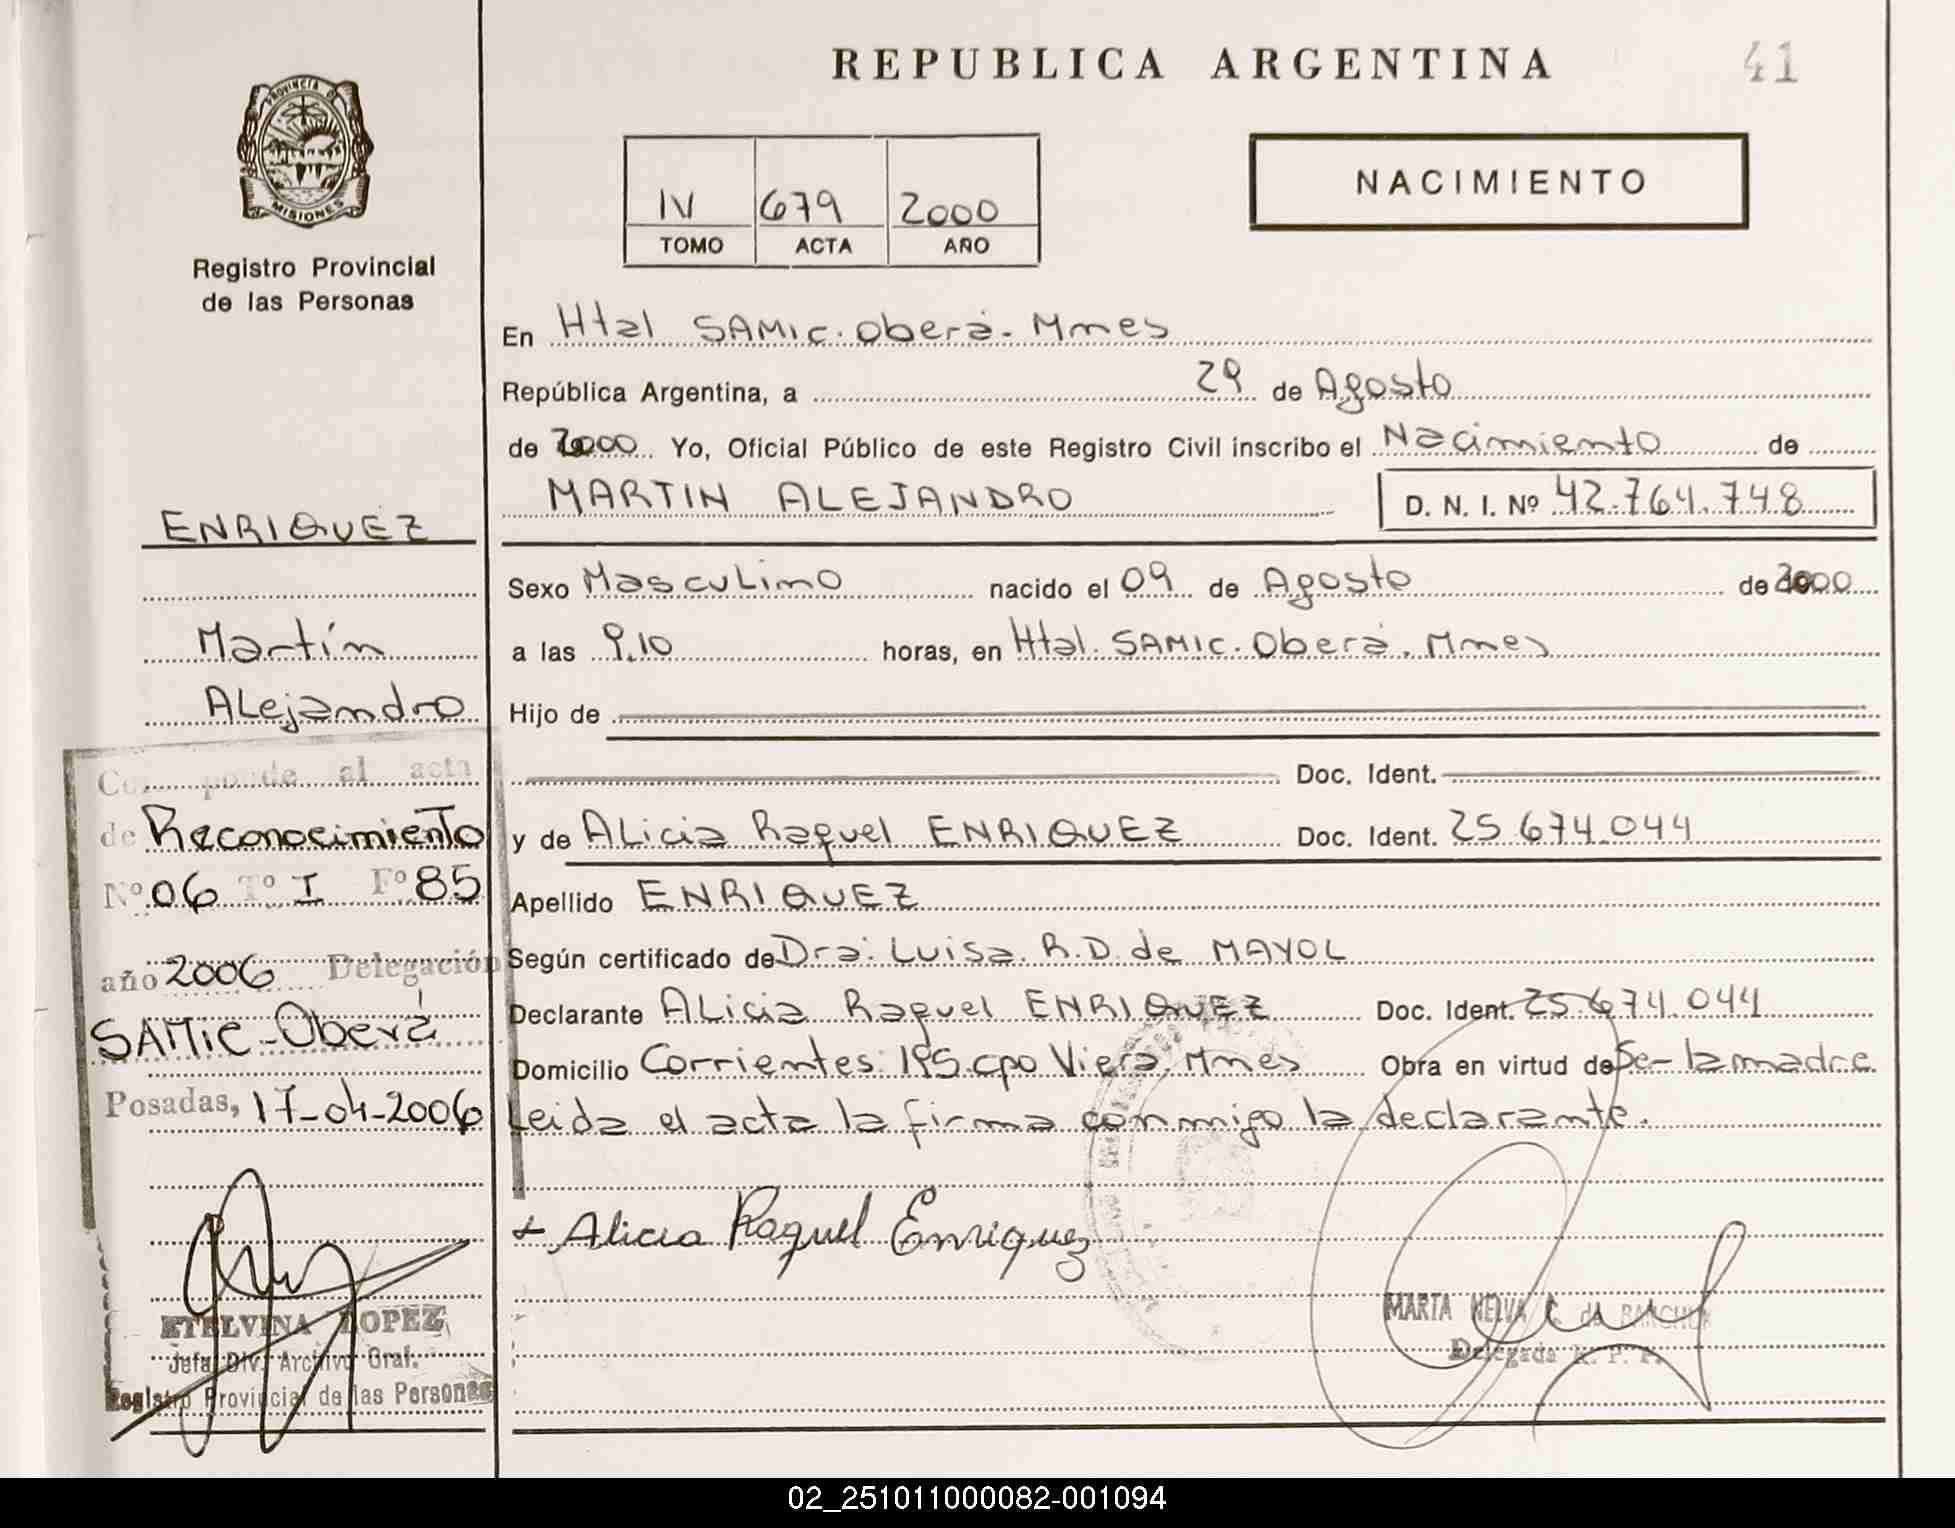 REPUBLICA ARGENTINA
41
PROVINCIA DE
MISIONES
Registro Provincial
de las Personas
IV 679 2000
TOMO ACTA AÑO
NACIMIENTO
En Htal SAMIC. Oberá. Mnes
República Argentina, a 29 de Agosto
de 2000 Yo, Oficial Público de este Registro Civil inscribo el Nacimiento de
MARTIN ALEJANDRO D. N. I. Nº 42.764.748
Sexo Masculino nacido el 09 de Agosto de 2000
a las 9.10 horas, en Htal. SAMIC. Oberá. Mnes
Hijo de
Doc. Ident.
y de Alicia Raquel ENRIQUEZ Doc. Ident. 25.674.044
Apellido ENRIQUEZ
Según certificado de Dra. Luisa. R.D. de MAYOL
Declarante Alicia Raquel ENRIQUEZ Doc. Ident. 25.674.044
Domicilio Corrientes 195 cpo Viera, Mnes Obra en virtud de Se- la madre
Leida el acta la firma conmigo la declarante.
+ Alicia Raquel Enriquez
MARTA NELVA C. de
Delegada R. P. P.
ENRIQUEZ
Martín
Alejandro
Corresponde al acta
de Reconocimiento
Nº 06 Tº I Fº 85
año 2006 Delegación
SAMIC-Oberá
Posadas, 17-04-2006
ETELVINA LOPEZ
Jefa Div. Archivo Gral.
Registro Provincial de las Personas
02_251011000082-001094